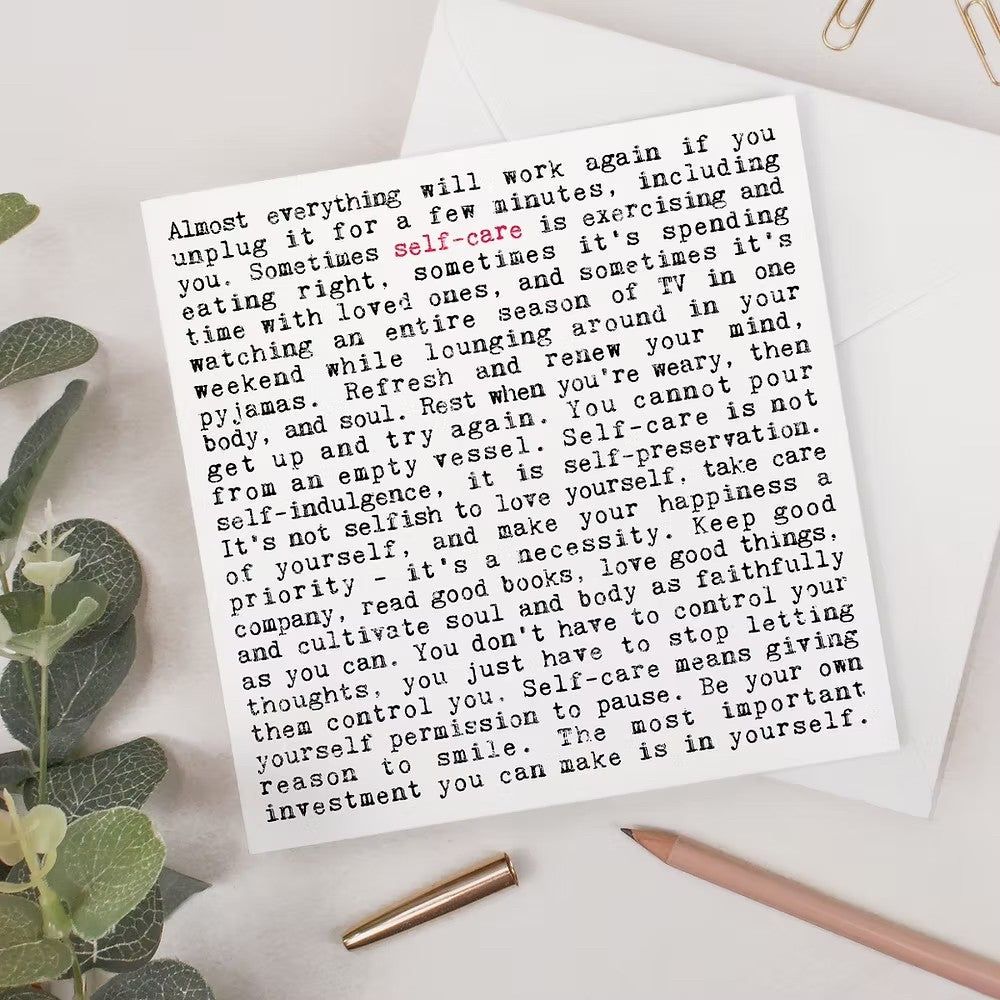 Almost everything will work again if you
unplug it for a few minutes, including
you. Sometimes self-care is exercising and
eating right, sometimes it's spending
time with loved ones, and sometimes it's
watching an entire season of TV in one
weekend while lounging around in your
pyjamas. Refresh and renew your mind,
body, and soul. Rest when you're weary, then
get up and try again. You cannot pour
from an empty vessel. Self-care is not
self-indulgence, it is self-preservation.
It's not selfish to love yourself, take care
of yourself, and make your happiness a
priority - it's a necessity. Keep good
company, read good books, love good things,
and cultivate soul and body as faithfully
as you can. You don't have to control your
thoughts, you just have to stop letting
them control you. Self-care means giving
yourself permission to pause. Be your own
reason to smile. The most important
investment you can make is in yourself.